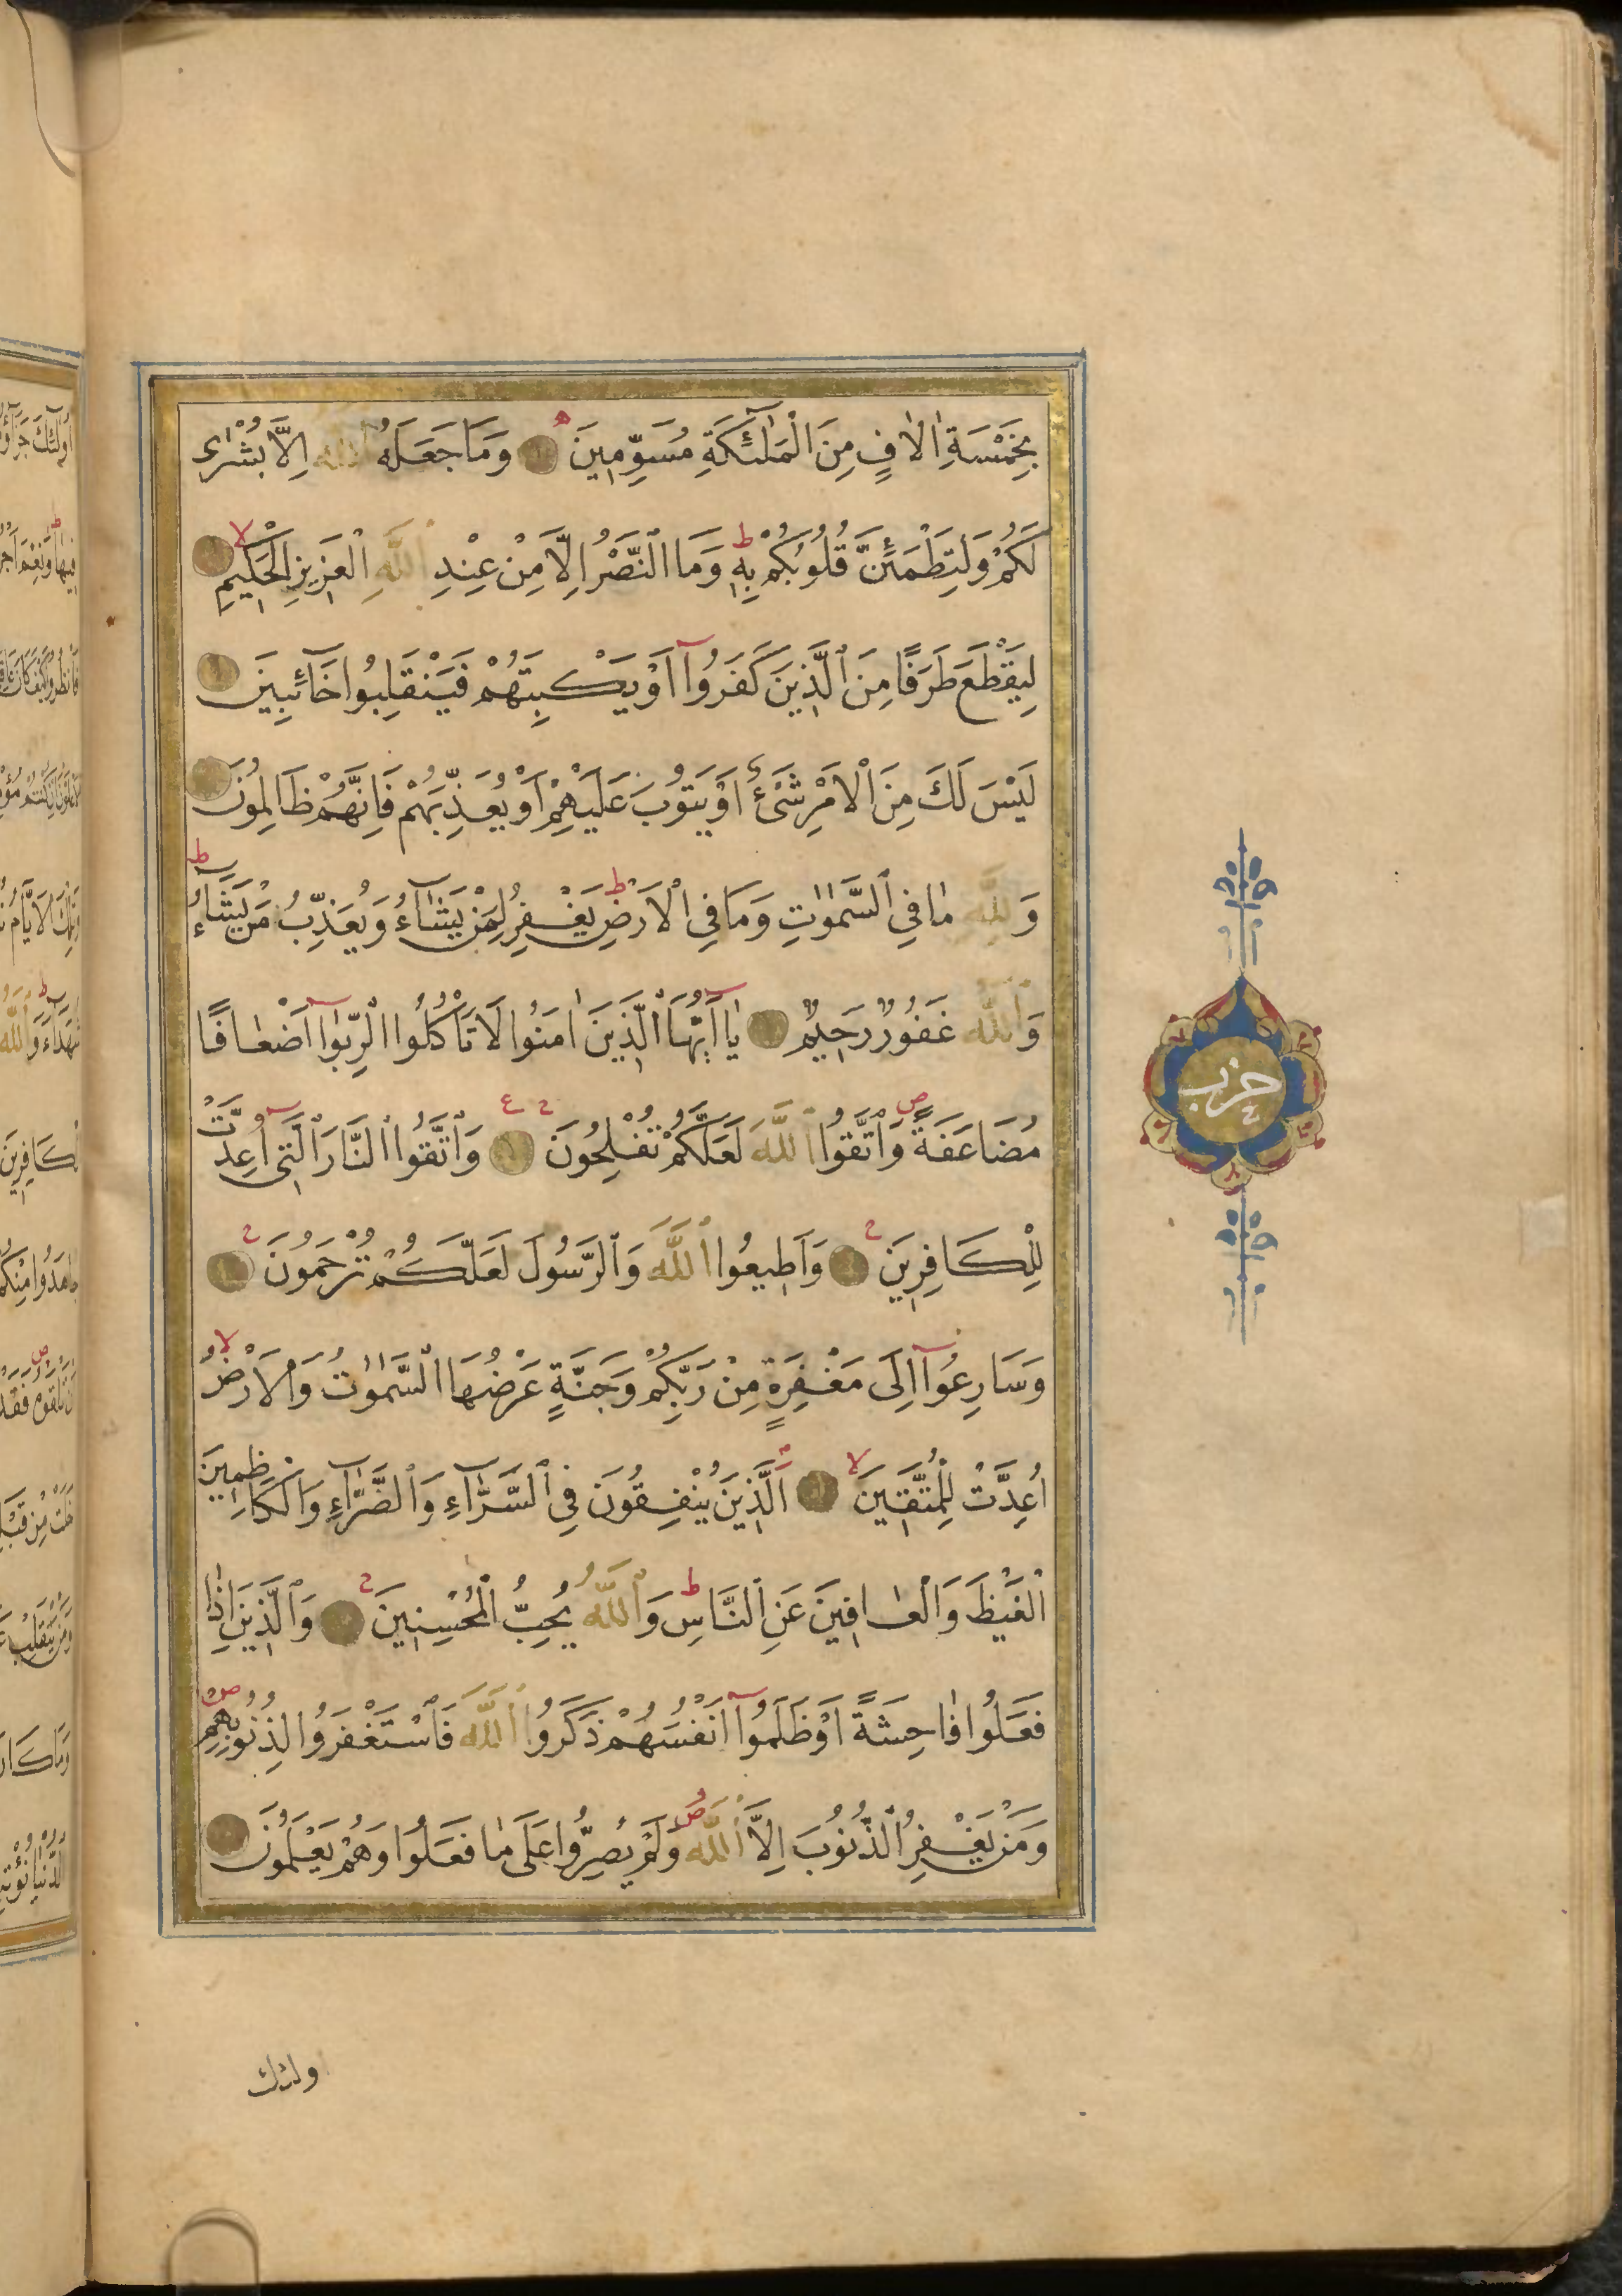 بِخَمْسَةِ اٰلَافٍ مِنَ الْمَلٰٓئِكَةِ مُسَوِّمٖينَ وَمَا جَعَلَهُ اللّٰهُ اِلَّا بُشْرٰى
لَكُمْ وَلِتَطْمَئِنَّ قُلُوبُكُمْ بِهٖ ط وَمَا النَّصْرُ اِلَّا مِنْ عِنْدِ اللّٰهِ الْعَزٖيزِ الْحَكٖيمِ لا
لِيَقْطَعَ طَرَفًا مِنَ الَّذٖينَ كَفَرُوٓا اَوْ يَكْبِتَهُمْ فَيَنْقَلِبُوا خَٓائِبٖينَ
لَيْسَ لَكَ مِنَ الْاَمْرِ شَىْءٌ اَوْ يَتُوبَ عَلَيْهِمْ اَوْ يُعَذِّبَهُمْ فَاِنَّهُمْ ظَالِمُونَ
وَلِلّٰهِ مٰا فِي السَّمٰوٰاتِ وَمَا فِي الْاَرْضِ ط يَغْفِرُ لِمَنْ يَشَٓاءُ وَيُعَذِّبُ مَنْ يَشَٓاءُ ط
وَاللّٰهُ غَفُورٌ رَحٖيمٌ يٰٓا اَيُّهَا الَّذٖينَ اٰمَنُوا لَا تَاْكُلُوا الرِّبٰوٓا اَضْعٰافًا
مُضَاعَفَةً ص وَاتَّقُوا اللّٰهَ لَعَلَّكُمْ تُفْلِحُونَ ج ع وَاتَّقُوا النَّارَ الَّتٖٓى اُعِدَّتْ
لِلْكَافِرٖينَ ج وَاَطٖيعُوا اللّٰهَ وَالرَّسُولَ لَعَلَّكُمْ تُرْحَمُونَ ج
وَسَارِعُوٓا اِلَى مَغْفِرَةٍ مِنْ رَبِّكُمْ وَجَنَّةٍ عَرْضُهَا السَّمٰوٰاتُ وَالْاَرْضُ لا
اُعِدَّتْ لِلْمُتَّقٖينَ لا اَلَّذٖينَ يُنْفِقُونَ فِي السَّرَّٓاءِ وَالضَّرَّٓاءِ وَالْكَاظِمٖينَ
الْغَيْظَ وَالْعٰافٖينَ عَنِ النَّاسِ ط وَاللّٰهُ يُحِبُّ الْمُحْسِنٖينَ ج وَالَّذٖينَ اِذٰا
فَعَلُوا فٰاحِشَةً اَوْ ظَلَمُوٓا اَنْفُسَهُمْ ذَكَرُوا اللّٰهَ فَاسْتَغْفَرُوا لِذُنُوبِهِمْ ص
وَمَنْ يَغْفِرُ الذُّنُوبَ اِلَّا اللّٰهُ ص وَلَمْ يُصِرُّوا عَلَى مٰا فَعَلُوا وَهُمْ يَعْلَمُونَ
حزب
اولئك